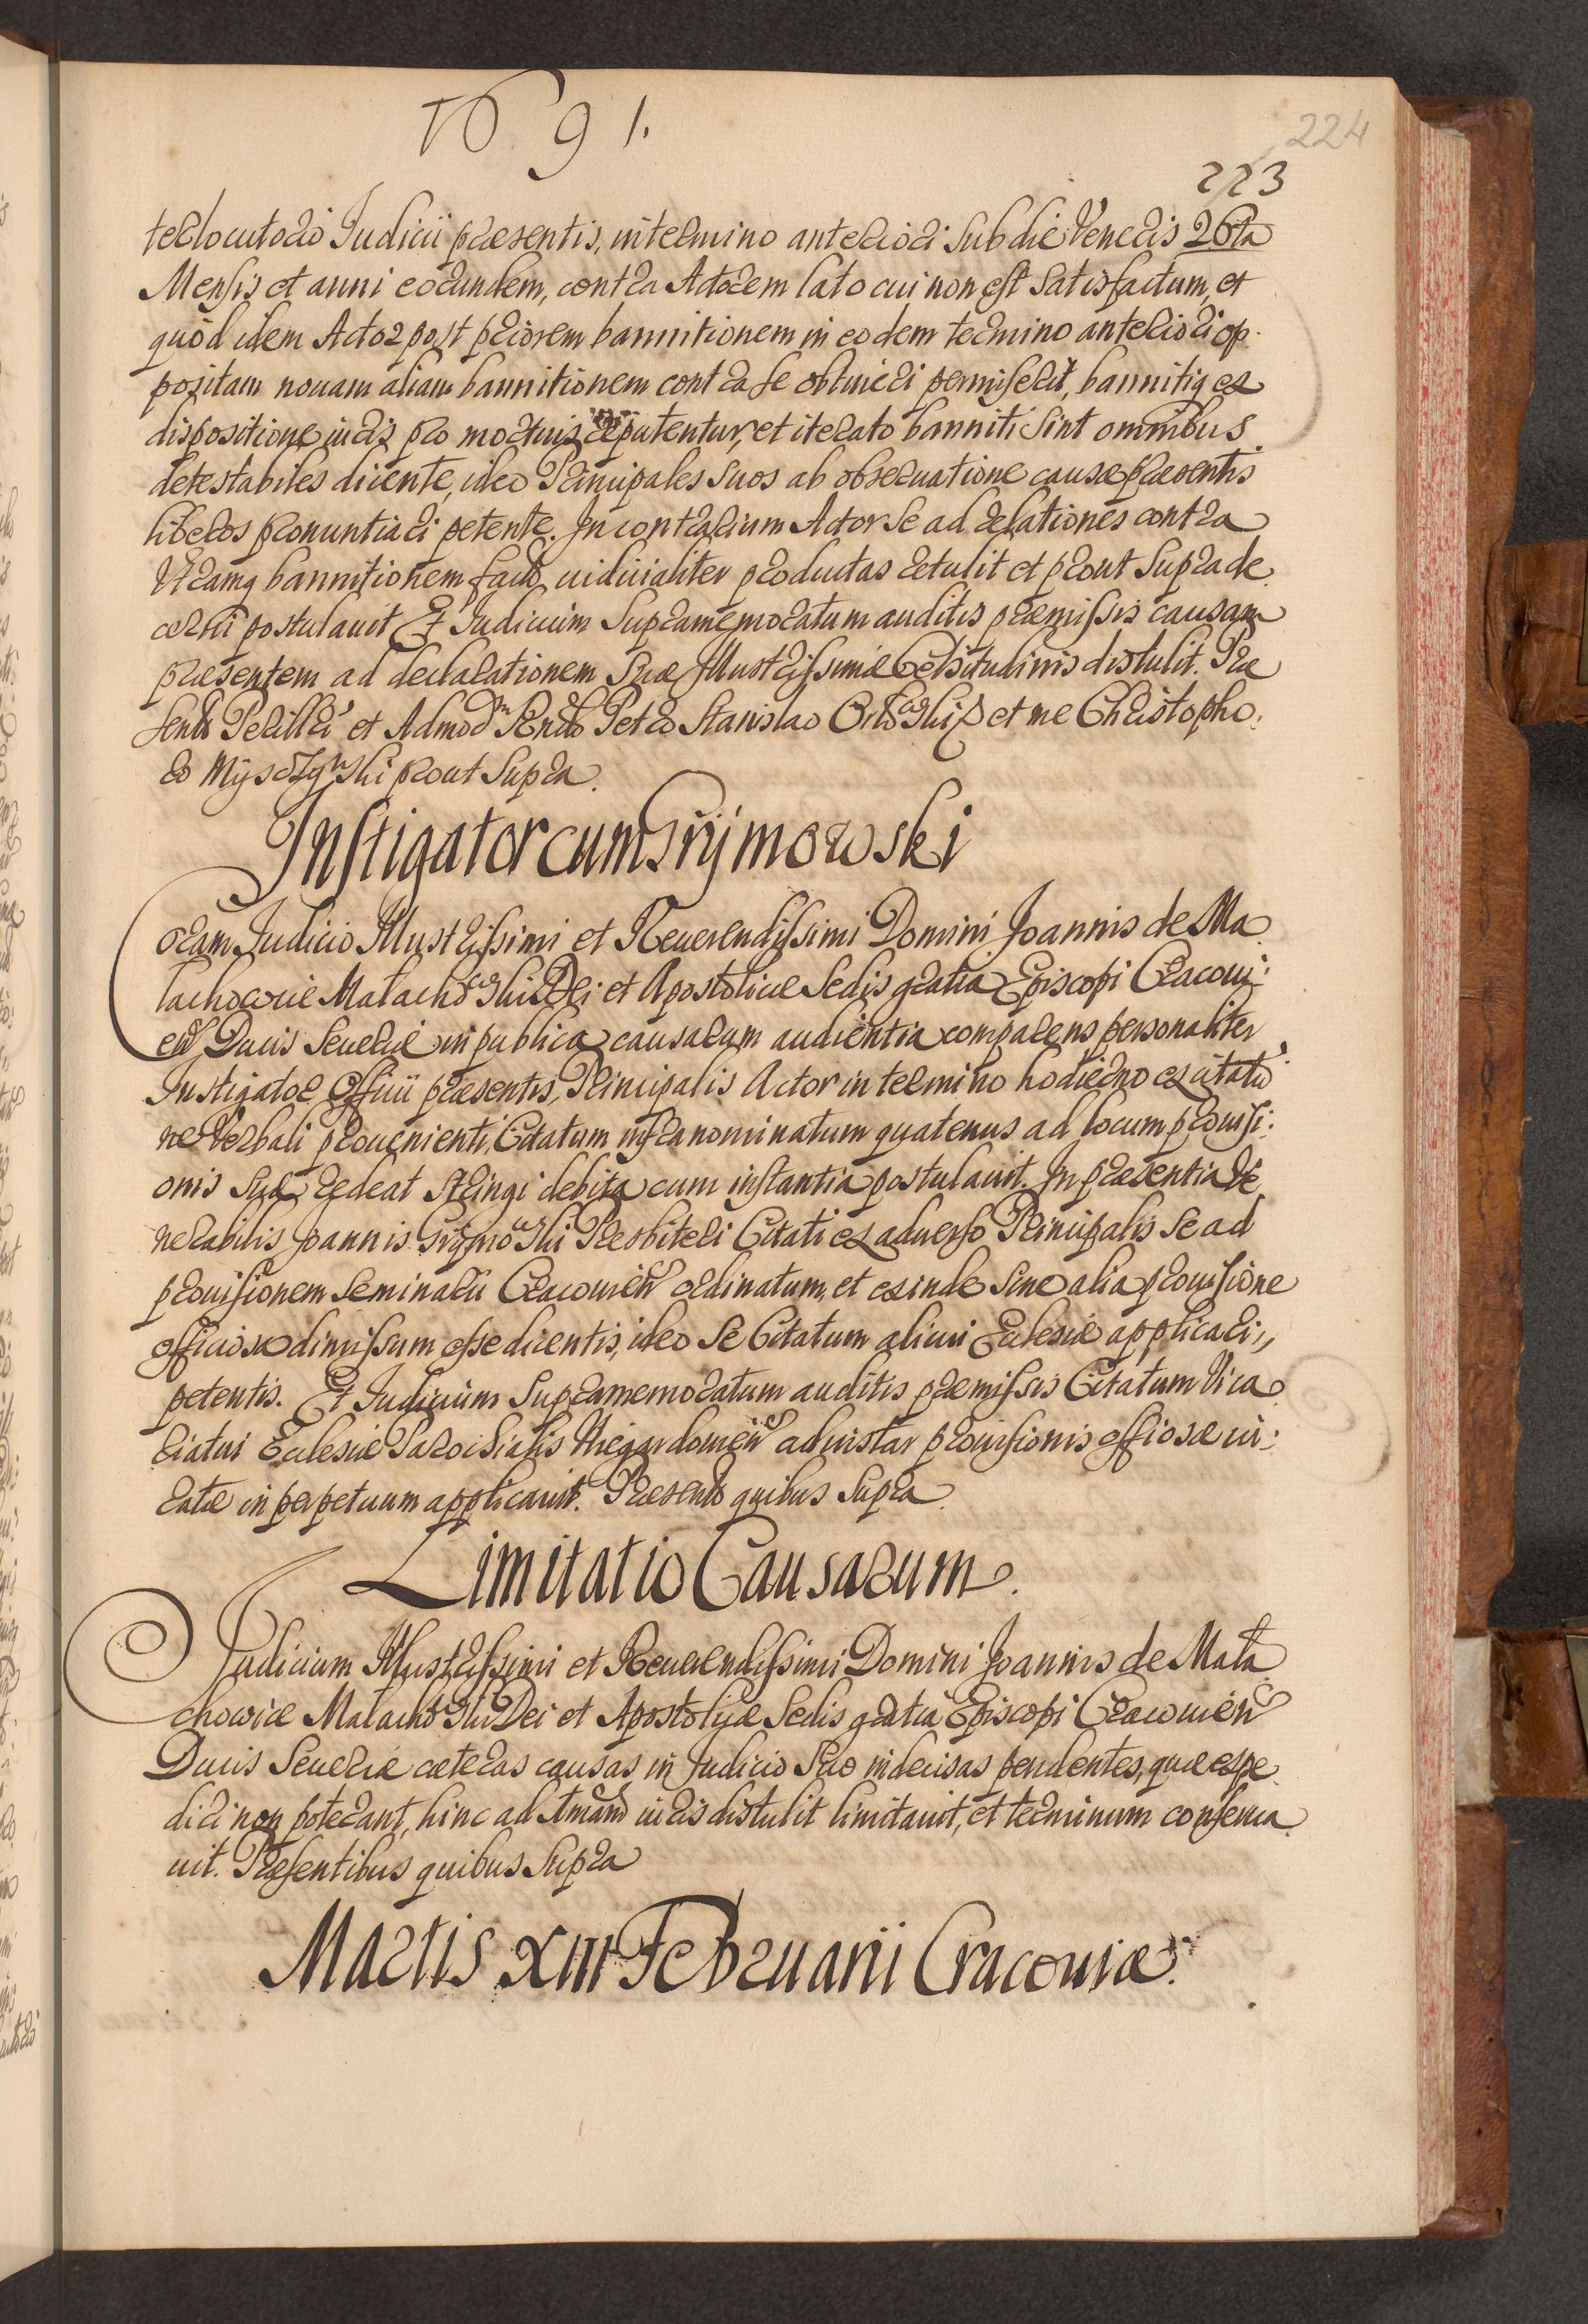 1691.
224
223
terlocutorio Iudicii præsentis, in termino anteriori sub die Veneris 26ta
Mensis et anni eorundem, contra Actorem lato cui non est satisfactum, et
quòd idem Actor post priorem bannitionem in eodem termino anteriori op-
positam nouam aliam bannitionem contra se obtineri permiserit, banniti q ex
dispositione iuris pro mortuis reputentur, et iterato banniti sint omnibus
detestabiles dicente, ideo Principales suos ab obseruatione causæ præsentis
liberos pronuntiari petente. In contrarium Actor se ad relationes contra
Utramq bannitionem iudicialiter productas retulit et prout supra de-
cerni postulauit Et Iudicium supramemoratum auditis præmissis causam
præsentem ad declarationem suæ Illustrissimæ Celsitudinis distulit. Præ
sent Perillri et Admod Rndo Petro Stanislao Orłowski et me Christopho-
ro Mysczynski prout supra.
Instigator cum Srÿmowski
Coram Iudicio Illustrissimi et Reuerendissimi Domini Joannis de Ma
lachowice Malachowski Dei et Apostolicæ Sedis gratia Episcopi Cracoui:
en Ducis Seueriæ in publica causarum audientia comparens personaliter
Instigator Officii præsentis, Principalis Actor in termino hodierno ex citatio
ne Verbali prouenienti, Citatum infra nominatum quatenus ad locum prouisi:
onis suæ redeat stringi debita cum instantia postulauit. In præsentia Ve
nerabilis Joannis Srymowski Præsbiteri Citati ex aduerso Principalis se ad
prouisionem Seminarii Cracouien ordinatum, et exinde sine alia prouisione
officiosa dimissum esse dicentis, ideo se Citatum alicui Eclesiæ applicari,,
petentis. Et Iudicium supramemoratum auditis præmissis Citatum Vica
riatui Eclesiæ Parochialis Miegardouien ad instar prouisionis officiosæ iu:
ratæ in perpetuum applicauit. Præsent quibus supra.
Limitatio Causarum.
Judicium Illustrissimi et Reuerendissimi Domini Joannis de Mala
chowice Malachowski Dei et Apostolicæ Sedis gratia Episcopi Cracouien
Ducis Seueriæ cæteras causas in Judicio suo indecisas pendentes, quæ expe
diri non poterant, hinc ad iuris distulit limitauit, et terminum conserua
uit. Præsentibus quibus supra
Martis XIII Februarii Cracouiæ.